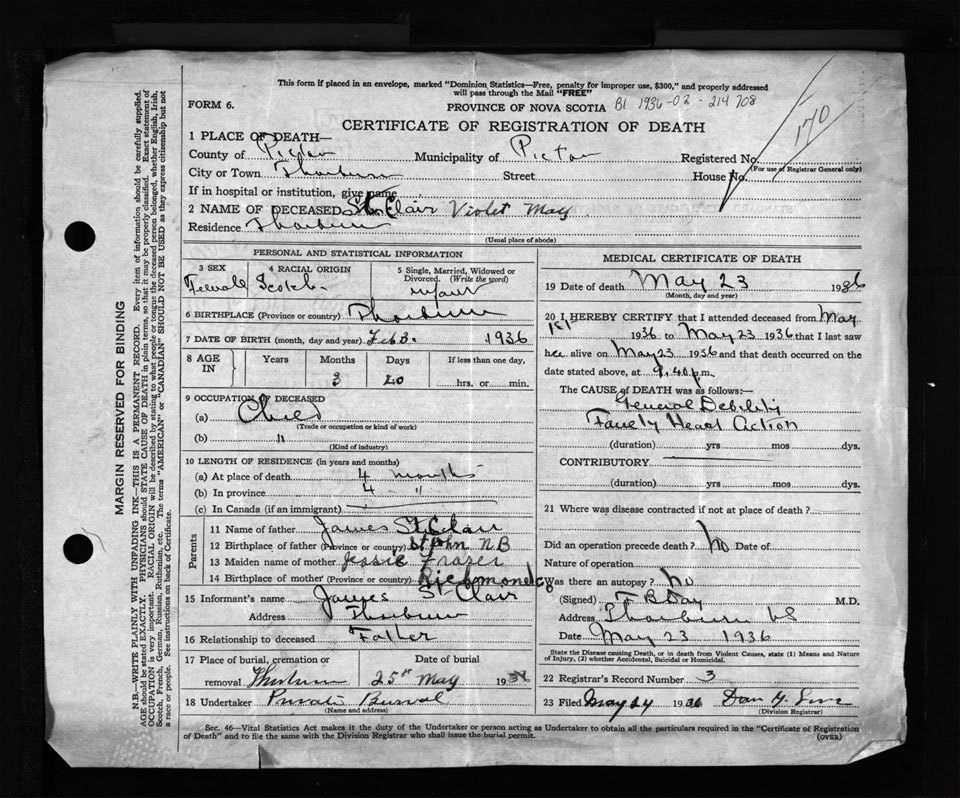 This form if placed in an envelope, marked "Dominion Statistics—Free, penalty for improper use, $300," and properly addressed
will pass through the Mail "FREE"
FORM 6.
PROVINCE OF NOVA SCOTIA B1 1936-02-214708
170
CERTIFICATE OF REGISTRATION OF DEATH
1 PLACE OF DEATH—
County of Pictou Municipality of Pictou Registered No.
(For use of Registrar General only)
City or Town Thorburn Street House No.
If in hospital or institution, give name
2 NAME OF DECEASED St. Clair Violet May
Residence Thorburn
(Usual place of abode)
PERSONAL AND STATISTICAL INFORMATION
3 SEX 4 RACIAL ORIGIN 5 Single, Married, Widowed or
Divorced. (Write the word)
Female Scotch infant
6 BIRTHPLACE (Province or country) Thorburn
7 DATE OF BIRTH (month, day and year) Feb 3. 1936
8 AGE IN Years Months Days If less than one day,
3 20 hrs. or min.
9 OCCUPATION OF DECEASED
(a) Child
(Trade or occupation or kind of work)
(b) "
(Kind of industry)
10 LENGTH OF RESIDENCE (in years and months)
(a) At place of death 4 months
(b) In province 4 "
(c) In Canada (if an immigrant)
Parents
11 Name of father James St. Clair
12 Birthplace of father (Province or country) St John N B
13 Maiden name of mother Jessie Frazer
14 Birthplace of mother (Province or country) Richmond Co
15 Informant's name James St Clair
Address Thorburn
16 Relationship to deceased Father
17 Place of burial, cremation or Date of burial
removal Thorburn 25th May 19
18 Undertaker Private Burial
(Name and address)
MEDICAL CERTIFICATE OF DEATH
19 Date of death May 23 1936
(Month, day and year)
20 I HEREBY CERTIFY that I attended deceased from May
1st 1936 to May 23 1936 that I last saw
her alive on May 23 1936 and that death occurred on the
date stated above, at 9.40 p.m.
The CAUSE of DEATH was as follows:—
General Debility
Faulty Heart Action
(duration) yrs mos dys.
CONTRIBUTORY
(duration) yrs mos dys.
21 Where was disease contracted if not at place of death?
Did an operation precede death? No Date of
Nature of operation
Was there an autopsy? No
(Signed) T B Day M.D.
Address Thorburn NS
Date May 23 1936
State the Disease causing Death, or in death from Violent Causes, state (1) Means and Nature
of Injury, (2) whether Accidental, Suicidal or Homicidal.
22 Registrar's Record Number 3
23 Filed May 24 1936 Dan
(Division Registrar)
Sec. 46—Vital Statistics Act makes it the duty of the Undertaker or person acting as Undertaker to obtain all the particulars required in the "Certificate of Registration
of Death" and to file the same with the Division Registrar who shall issue the burial permit.
(OVER)
MARGIN RESERVED FOR BINDING
N.B.—WRITE PLAINLY WITH UNFADING INK—THIS IS A PERMANENT RECORD. Every item of information should be carefully supplied.
AGE should be stated EXACTLY. PHYSICIANS should STATE CAUSE OF DEATH in plain terms, so that it may be properly classified. Exact statement of
OCCUPATION is very important. RACIAL ORIGIN will be described by stating to what people or tongue the deceased person belonged, whether English, Irish,
Scotch, French, German, Russian, Ruthenian, etc. The terms "AMERICAN" or "CANADIAN" SHOULD NOT BE USED as they express citizenship but not
a race or people. See instructions on back of Certificate.